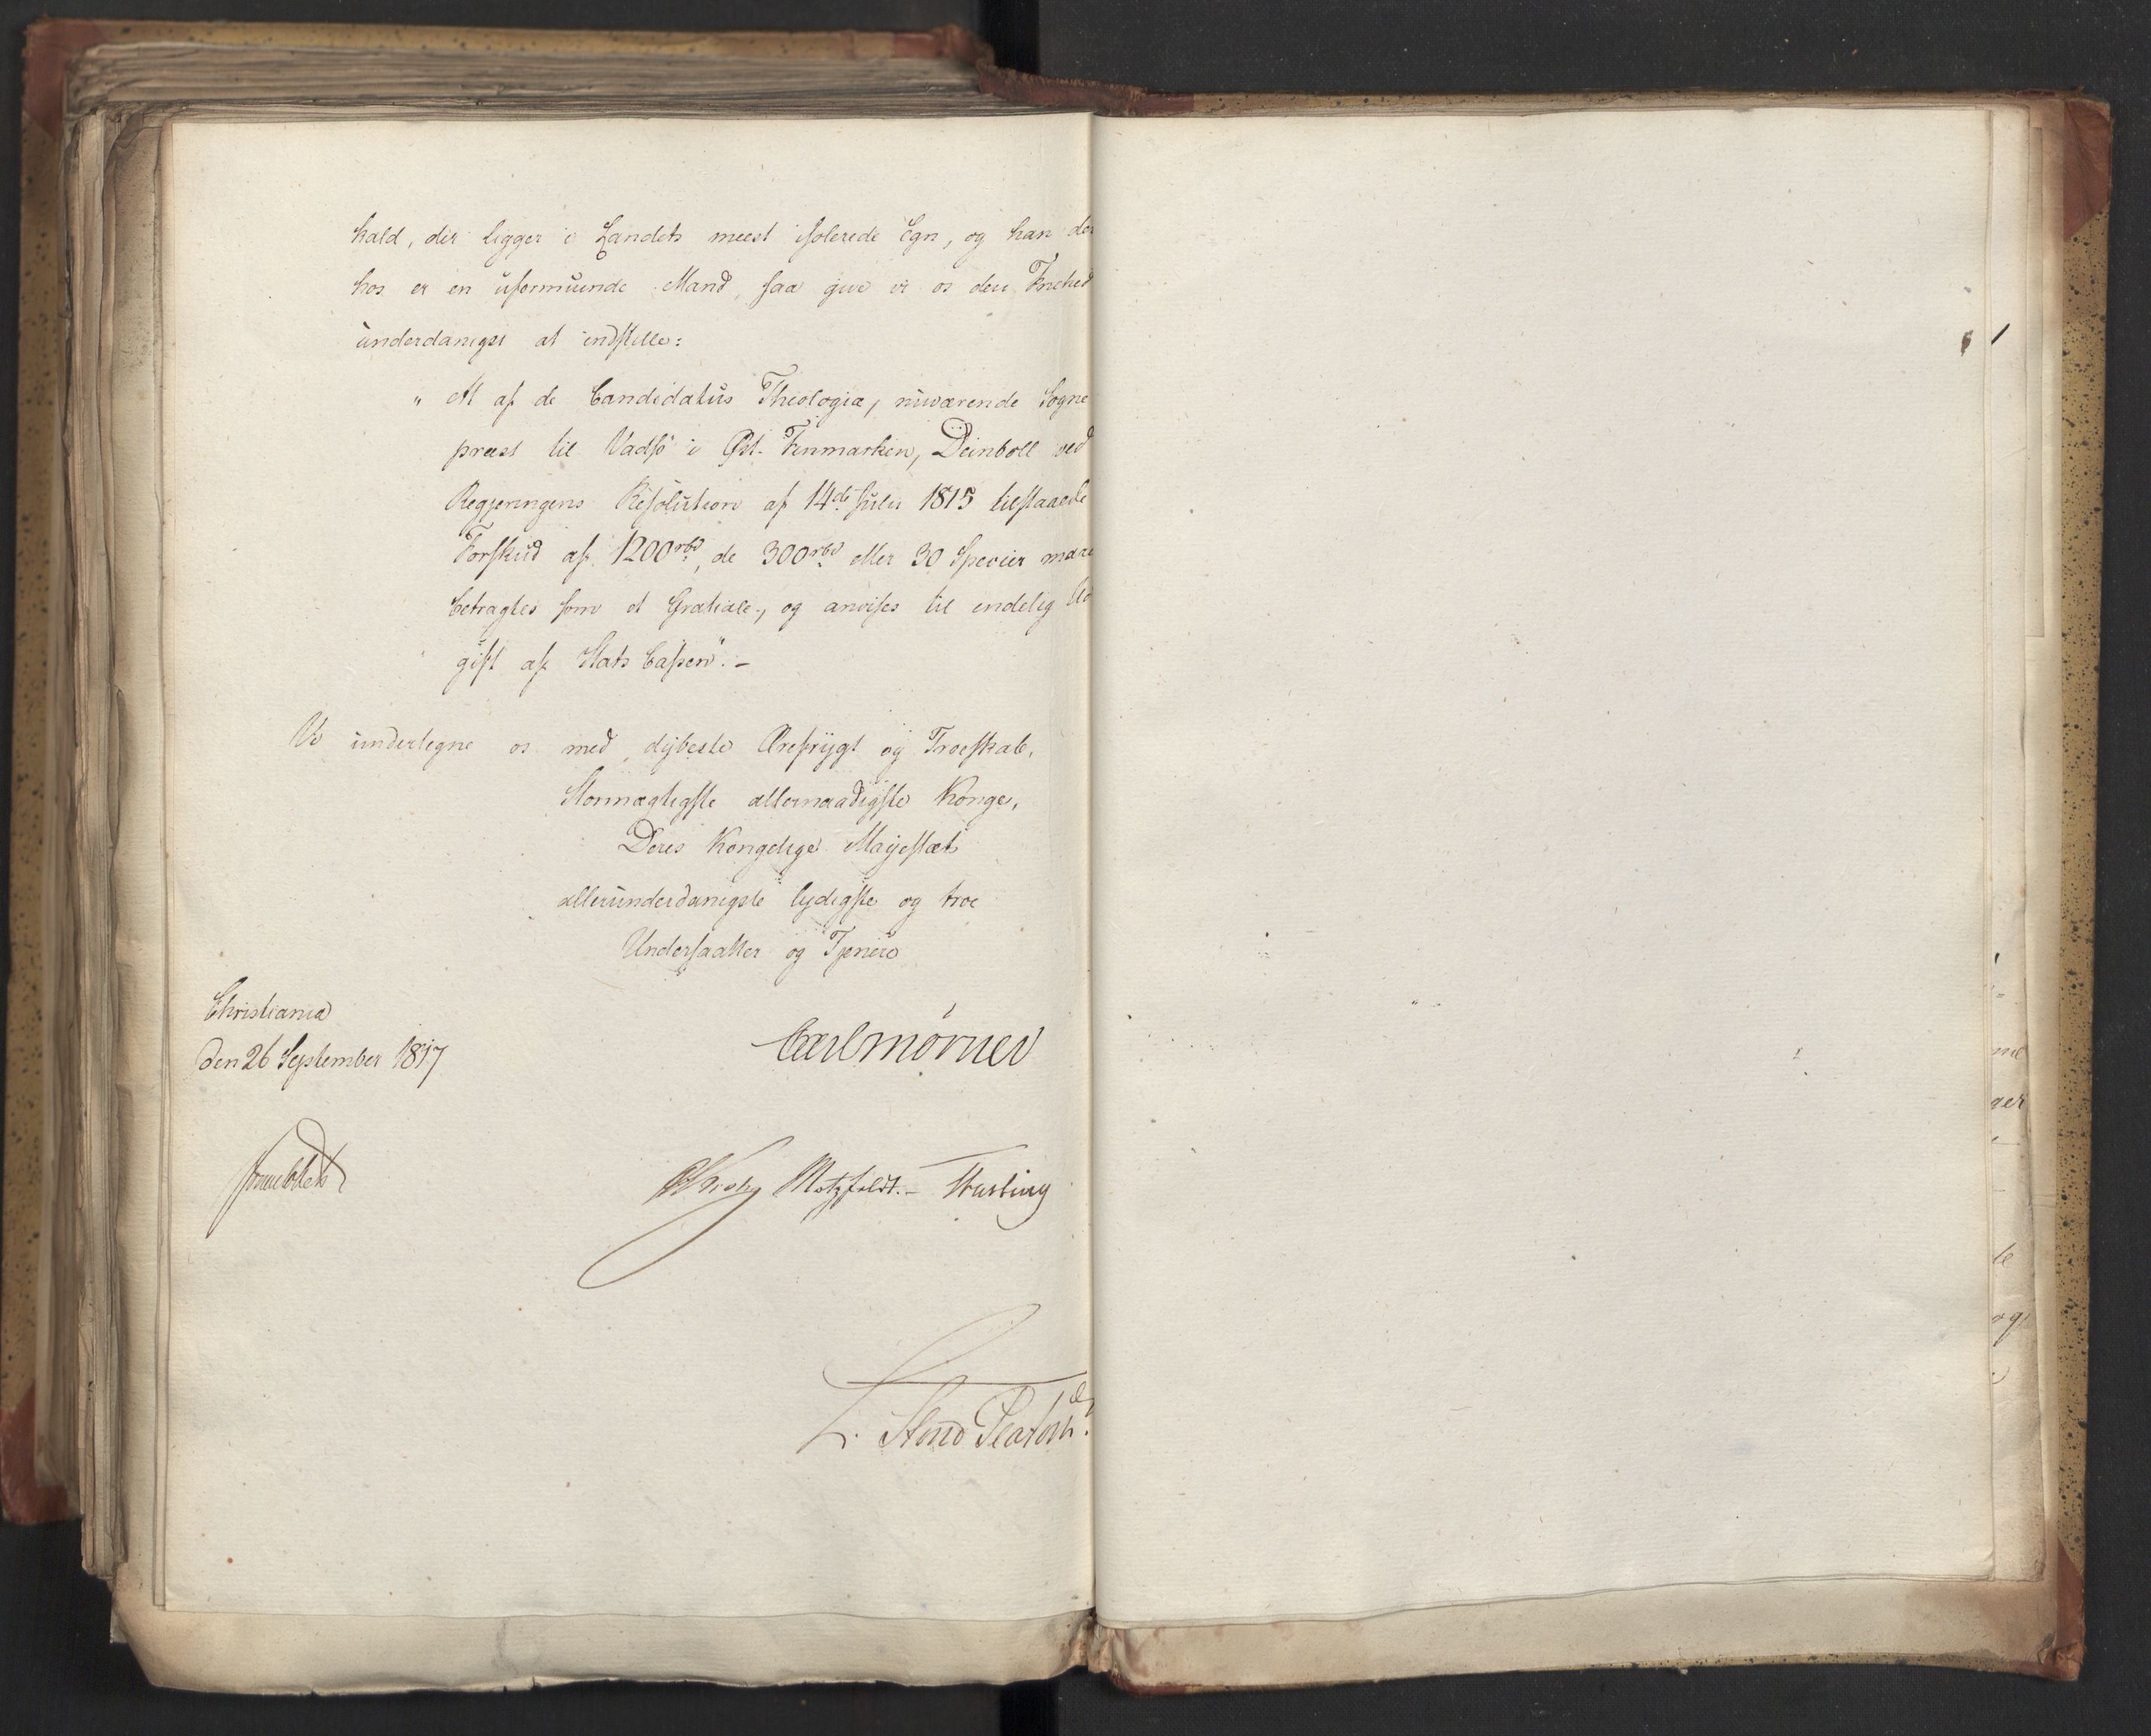 kald, der ligger i Landets meest isolerede Egn, og han der
hos er en uformuende Mand, saa give vi os den Friehed
underdanigst at indstille:
" At af de Candidatus Theologiæ, nuværende Sogne
præst til Vadsö i Øst-Finmarken, Deinboll ved
Regjeringens Resolution af 14de Julii 1815 tilstaaede
Forskud af 1200 rbd, de 300 rbd eller 30 Specier maae
betragtes som et Gratiale, og anvises til endelig Ud
gift af Stats Cassen". -
Vi undertegne os med dybeste Ærefrygt og Troeskab,
Stormægtigste allernaadigste Konge,
Deres Kongelige Majestæts
allerunderdanigste lydigste og troe
Undersaatter og Tjenere
Christiania
den 26 September 1817
Carl Mörner
Sommerhielm
Krohg Motzfeldt. - Fasting
L. Stoud Platou